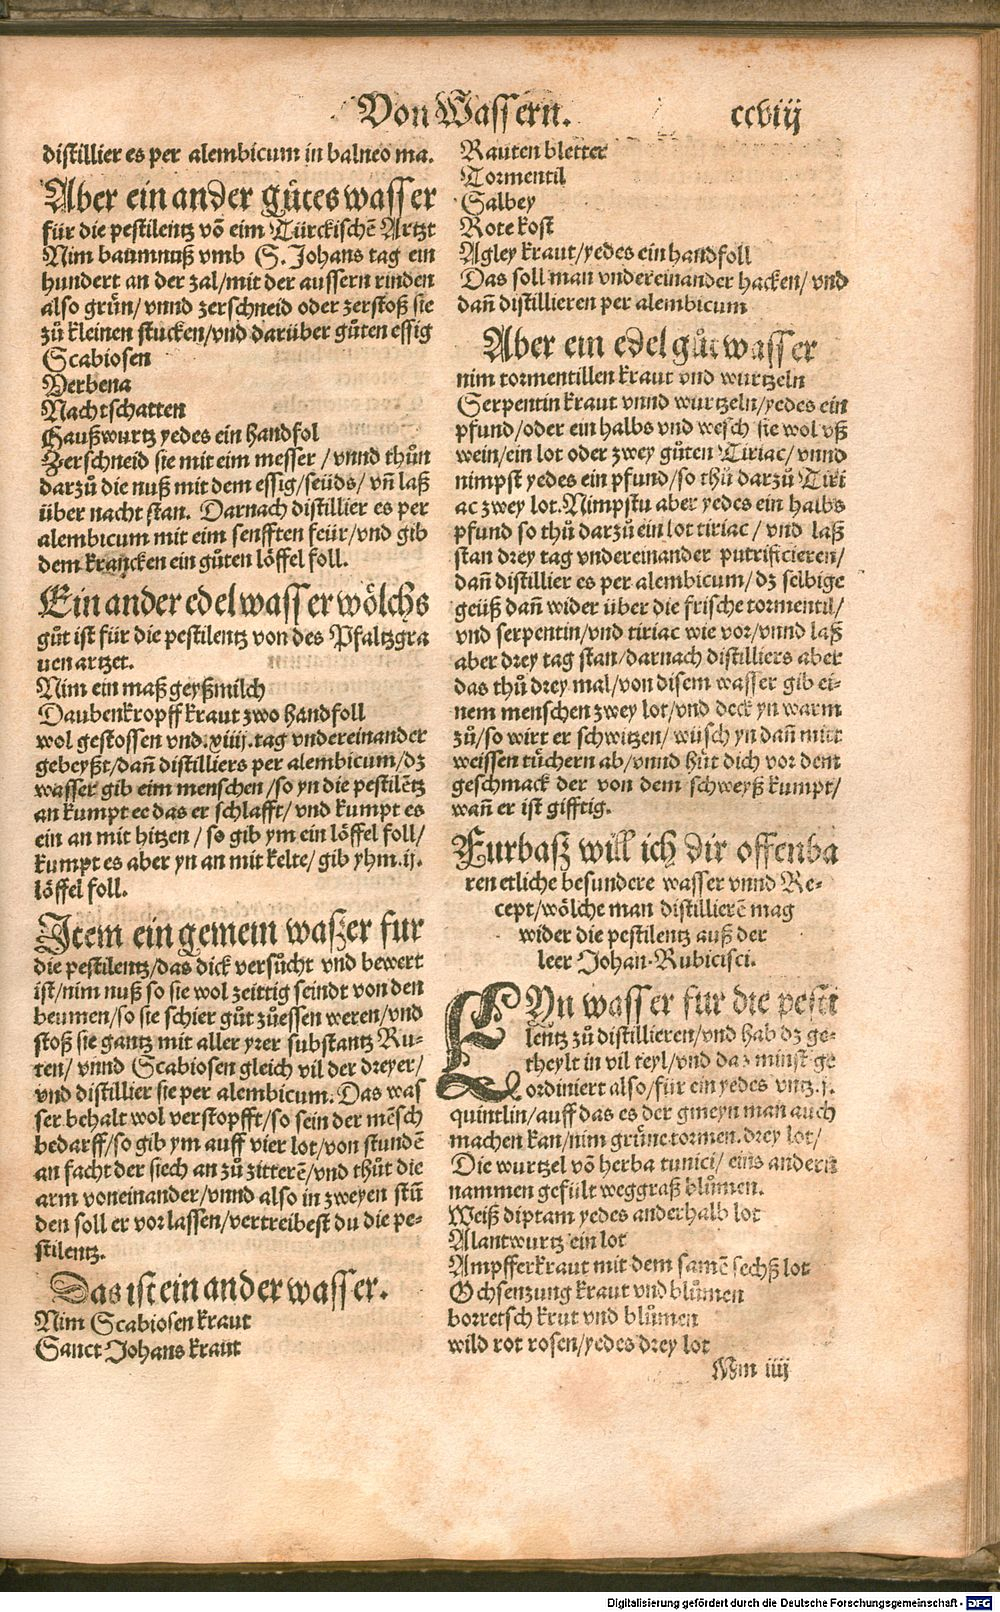 Von Wassern.
ccviij
distillier es per alembicum in balneo ma.
Aber ein ander gůtes wasser
für die pestilentz võ eim Türckischẽ Artzt
Nim baumnuß vmb S. Johans tag ein
hundert an der zal/mit der aussern rinden
also grün/vnnd zerschneid oder zerstoß sie
zů kleinen stucken/vnd darüber gůten essig
Scabiosen
Verbena
Nachtschatten
Haußwurtz yedes ein handfol
Zerschneid sie mit eim messer/vnnd thůn
darzů die nuß mit dem essig/seüds/vñ laß
über nacht stan. Darnach distillier es per
alembicum mit eim senfften feür/vnd gib
dem krancken ein gůten löffel foll.
Ein ander edel wasser wölchs
gůt ist für die pestilentz von des Pfaltzgra
uen artzet.
Nim ein maß geyßmilch
Daubenkropff kraut zwo handfoll
wol gestossen vnd .xiiij. tag vndereinander
gebeyßt/dañ distilliers per alembicum/dz
wasser gib eim menschen/so yn die pestilẽtz
an kumpt ee das er schlafft/vnd kumpt es
ein an mit hitzen/so gib ym ein löffel foll/
kumpt es aber yn an mit kelte/gib yhm .ij.
löffel foll.
Item ein gemein waszer fur
die pestilentz/das dick versůcht vnd bewert
ist/nim nuß so sie wol zeittig seindt von den
beumen/so sie schier gůt zůessen weren/vnd
stoß sie gantz mit aller yrer substantz Ru-
ten/vnnd Scabiosen gleich vil der dreyer/
vnd distillier sie per alembicum. Das was
ser behalt wol verstopfft/so sein der mẽsch
bedarff/so gib ym auff vier lot/von stundẽ
an facht der siech an zů zitterẽ/vnd thůt die
arm voneinander/vnnd also in zweyen stũ
den soll er vor lassen/vertreibest du die pe-
stilentz.
Das ist ein ander wasser.
Nim Scabiosen kraut
Sanct Johans kraut
Rauten bletter
Tormentil
Salbey
Rote kost
Agley kraut/yedes ein handfoll
Das soll man vndereinander hacken/vnd
dañ distillieren per alembicum
Aber ein edel gůt wasser
nim tormentillen kraut vnd wurtzeln
Serpentin kraut vnnd wurtzeln/yedes ein
pfund/oder ein halbs vnd wesch sie wol vß
wein/ein lot oder zwey gůten Tiriac/vnnd
nimpst yedes ein pfund/so thů darzů Tiri
ac zwey lot. Nimpstu aber yedes ein halbs
pfund so thů darzů ein lot tiriac/vnd laß
stan drey tag vndereinander putrificieren/
dañ distillier es per alembicum/dz selbige
geüß dañ wider über die frische tormentil/
vnd serpentin/vnd tiriac wie vor/vnnd laß
aber drey tag stan/darnach distilliers aber
das thů drey mal/von disem wasser gib ei-
nem menschen zwey lot/vnd deck yn warm
zů/so wirt er schwitzen/wüsch yn dañ mitt
weissen tüchern ab/vnnd hüt dich vor dem
geschmack der von dem schweyß kumpt/
wañ er ist gifftig.
Furbasz will ich dir offenba
ren etliche besundere wasser vnnd Re-
cept/wölche man distillierẽ mag
wider die pestilentz auß der
leer Johan. Rubicisci.
EYn wasser fur die pesti
lentz zů distillieren/vnd hab dz ge-
theylt in vil teyl/vnd daz minst ge
ordiniert also/für ein yedes vntz .j.
quintlin/auff das es der gmeyn man auch
machen kan/nim grüne tormen. drey lot/
Die wurtzel võ herba tunici/eins andern
nammen gefült weggraß blůmen.
Weiß diptam yedes anderhalb lot
Alantwurtz ein lot
Ampfferkraut mit dem samẽ sechß lot
Ochsenzung kraut vnd blůmen
borretsch krut vnd blůmen
wild rot rosen/yedes drey lot
Mm iiij
Digitalisierung gefördert durch die Deutsche Forschungsgemeinschaft - DFG